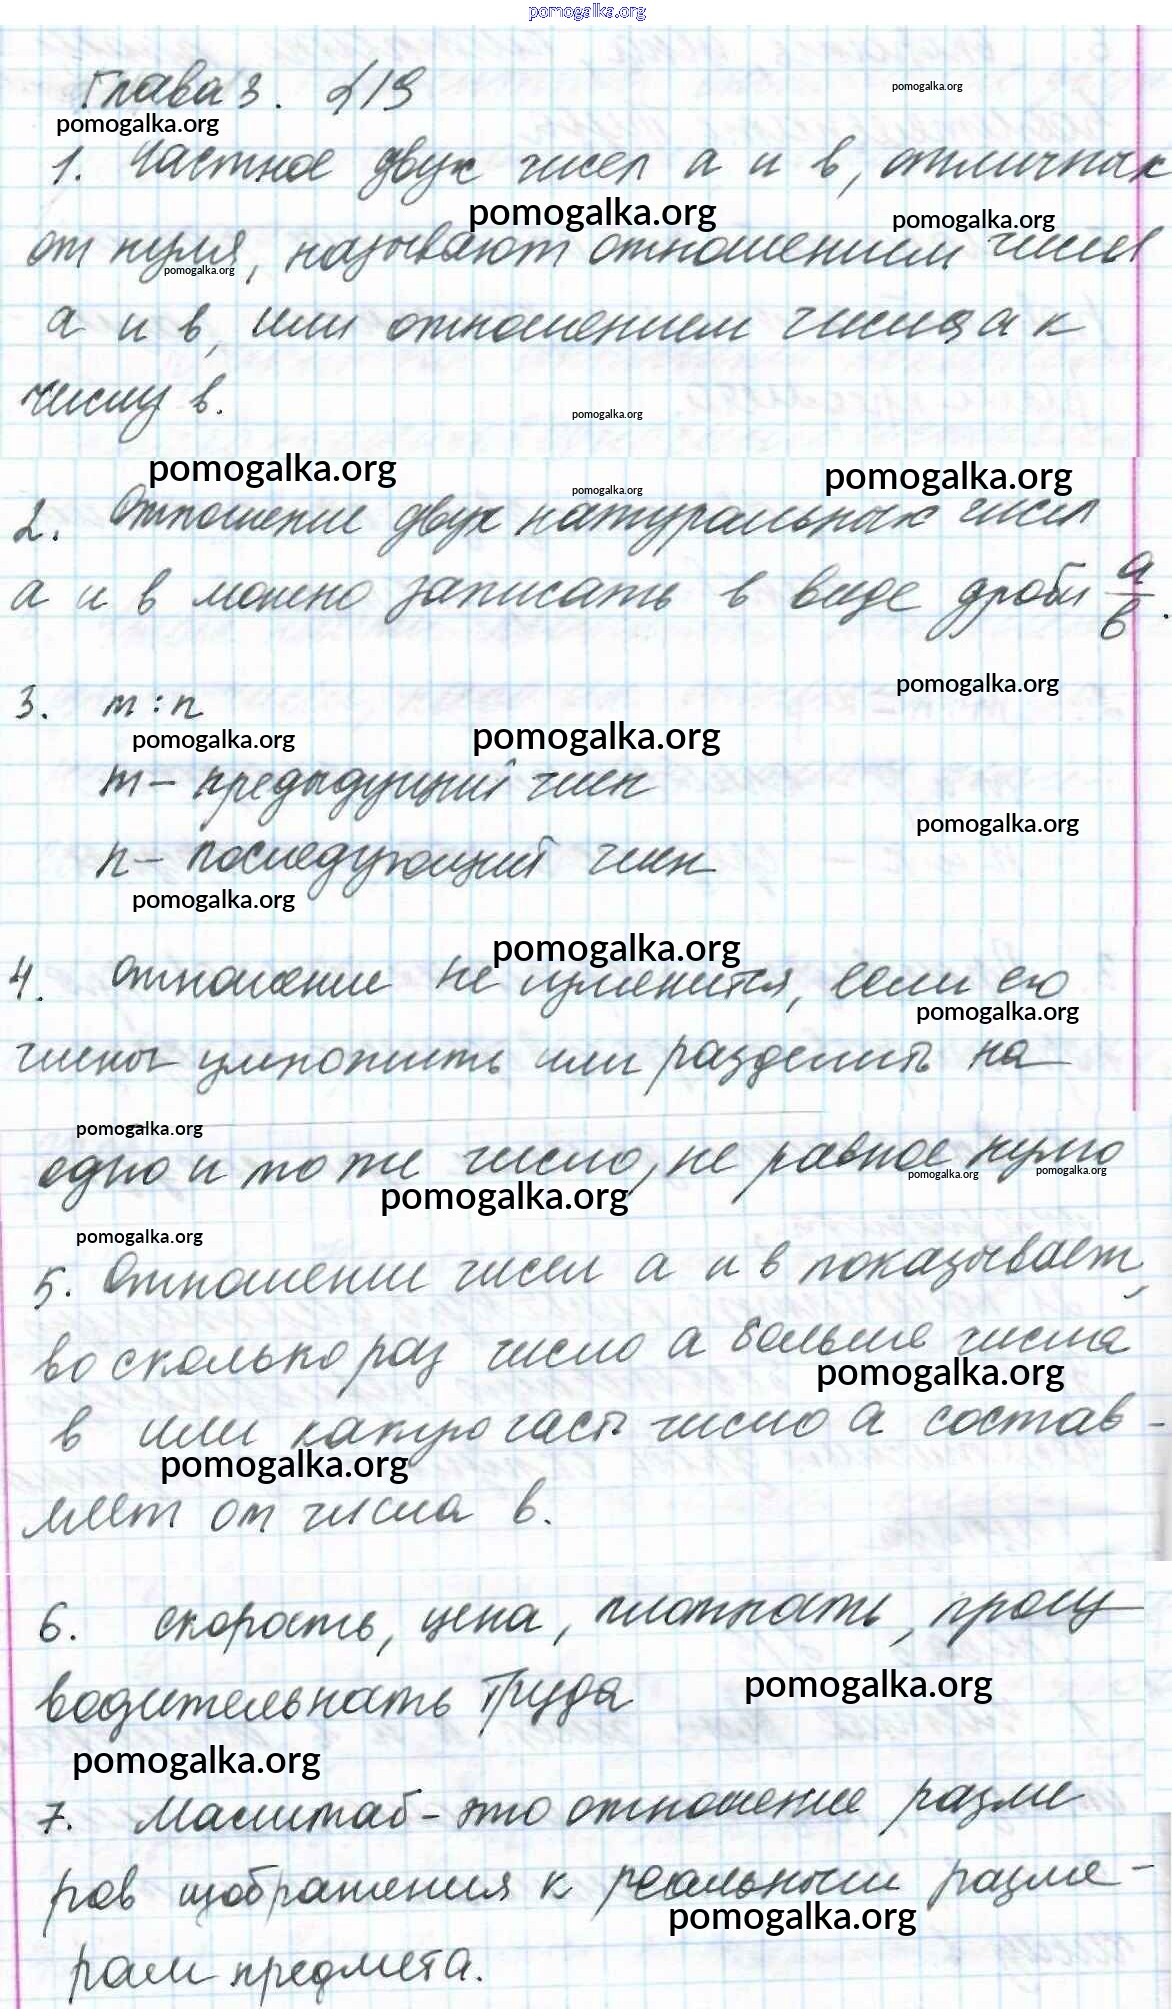 pomogalka.org
Глава 3. §19
pomogalka.org
pomogalka.org
1. Частное двух чисел а и в, отличных
pomogalka.org
pomogalka.org
от нуля, называют отношением чисел
pomogalka.org
а и в, или отношением числа а к
числу в.
pomogalka.org
pomogalka.org
pomogalka.org
pomogalka.org
2. Отношение двух натуральных чисел
а и в можно записать в виде дроби a/в.
pomogalka.org
3. m : n
pomogalka.org
pomogalka.org
m – предыдущий член
pomogalka.org
n – последующий член
pomogalka.org
pomogalka.org
4. Отношение не изменится, если его
pomogalka.org
члены умножить или разделить на
pomogalka.org
одно и то же число, не равное нулю
pomogalka.org
pomogalka.org
pomogalka.org
pomogalka.org
5. Отношение чисел а и в показывает,
во сколько раз число а больше числа
pomogalka.org
в или какую часть число а состав-
pomogalka.org
ляет от числа в.
6. скорость, цена, плотность, произ
водительность труда
pomogalka.org
pomogalka.org
7. Масштаб – это отношение разме
ров изображения к реальным разме-
pomogalka.org
рам предмета.